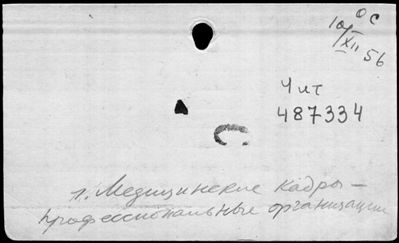 ОС
10/XII 56
Чит
487334
1. Медицинские кадры —
профессиональные организации